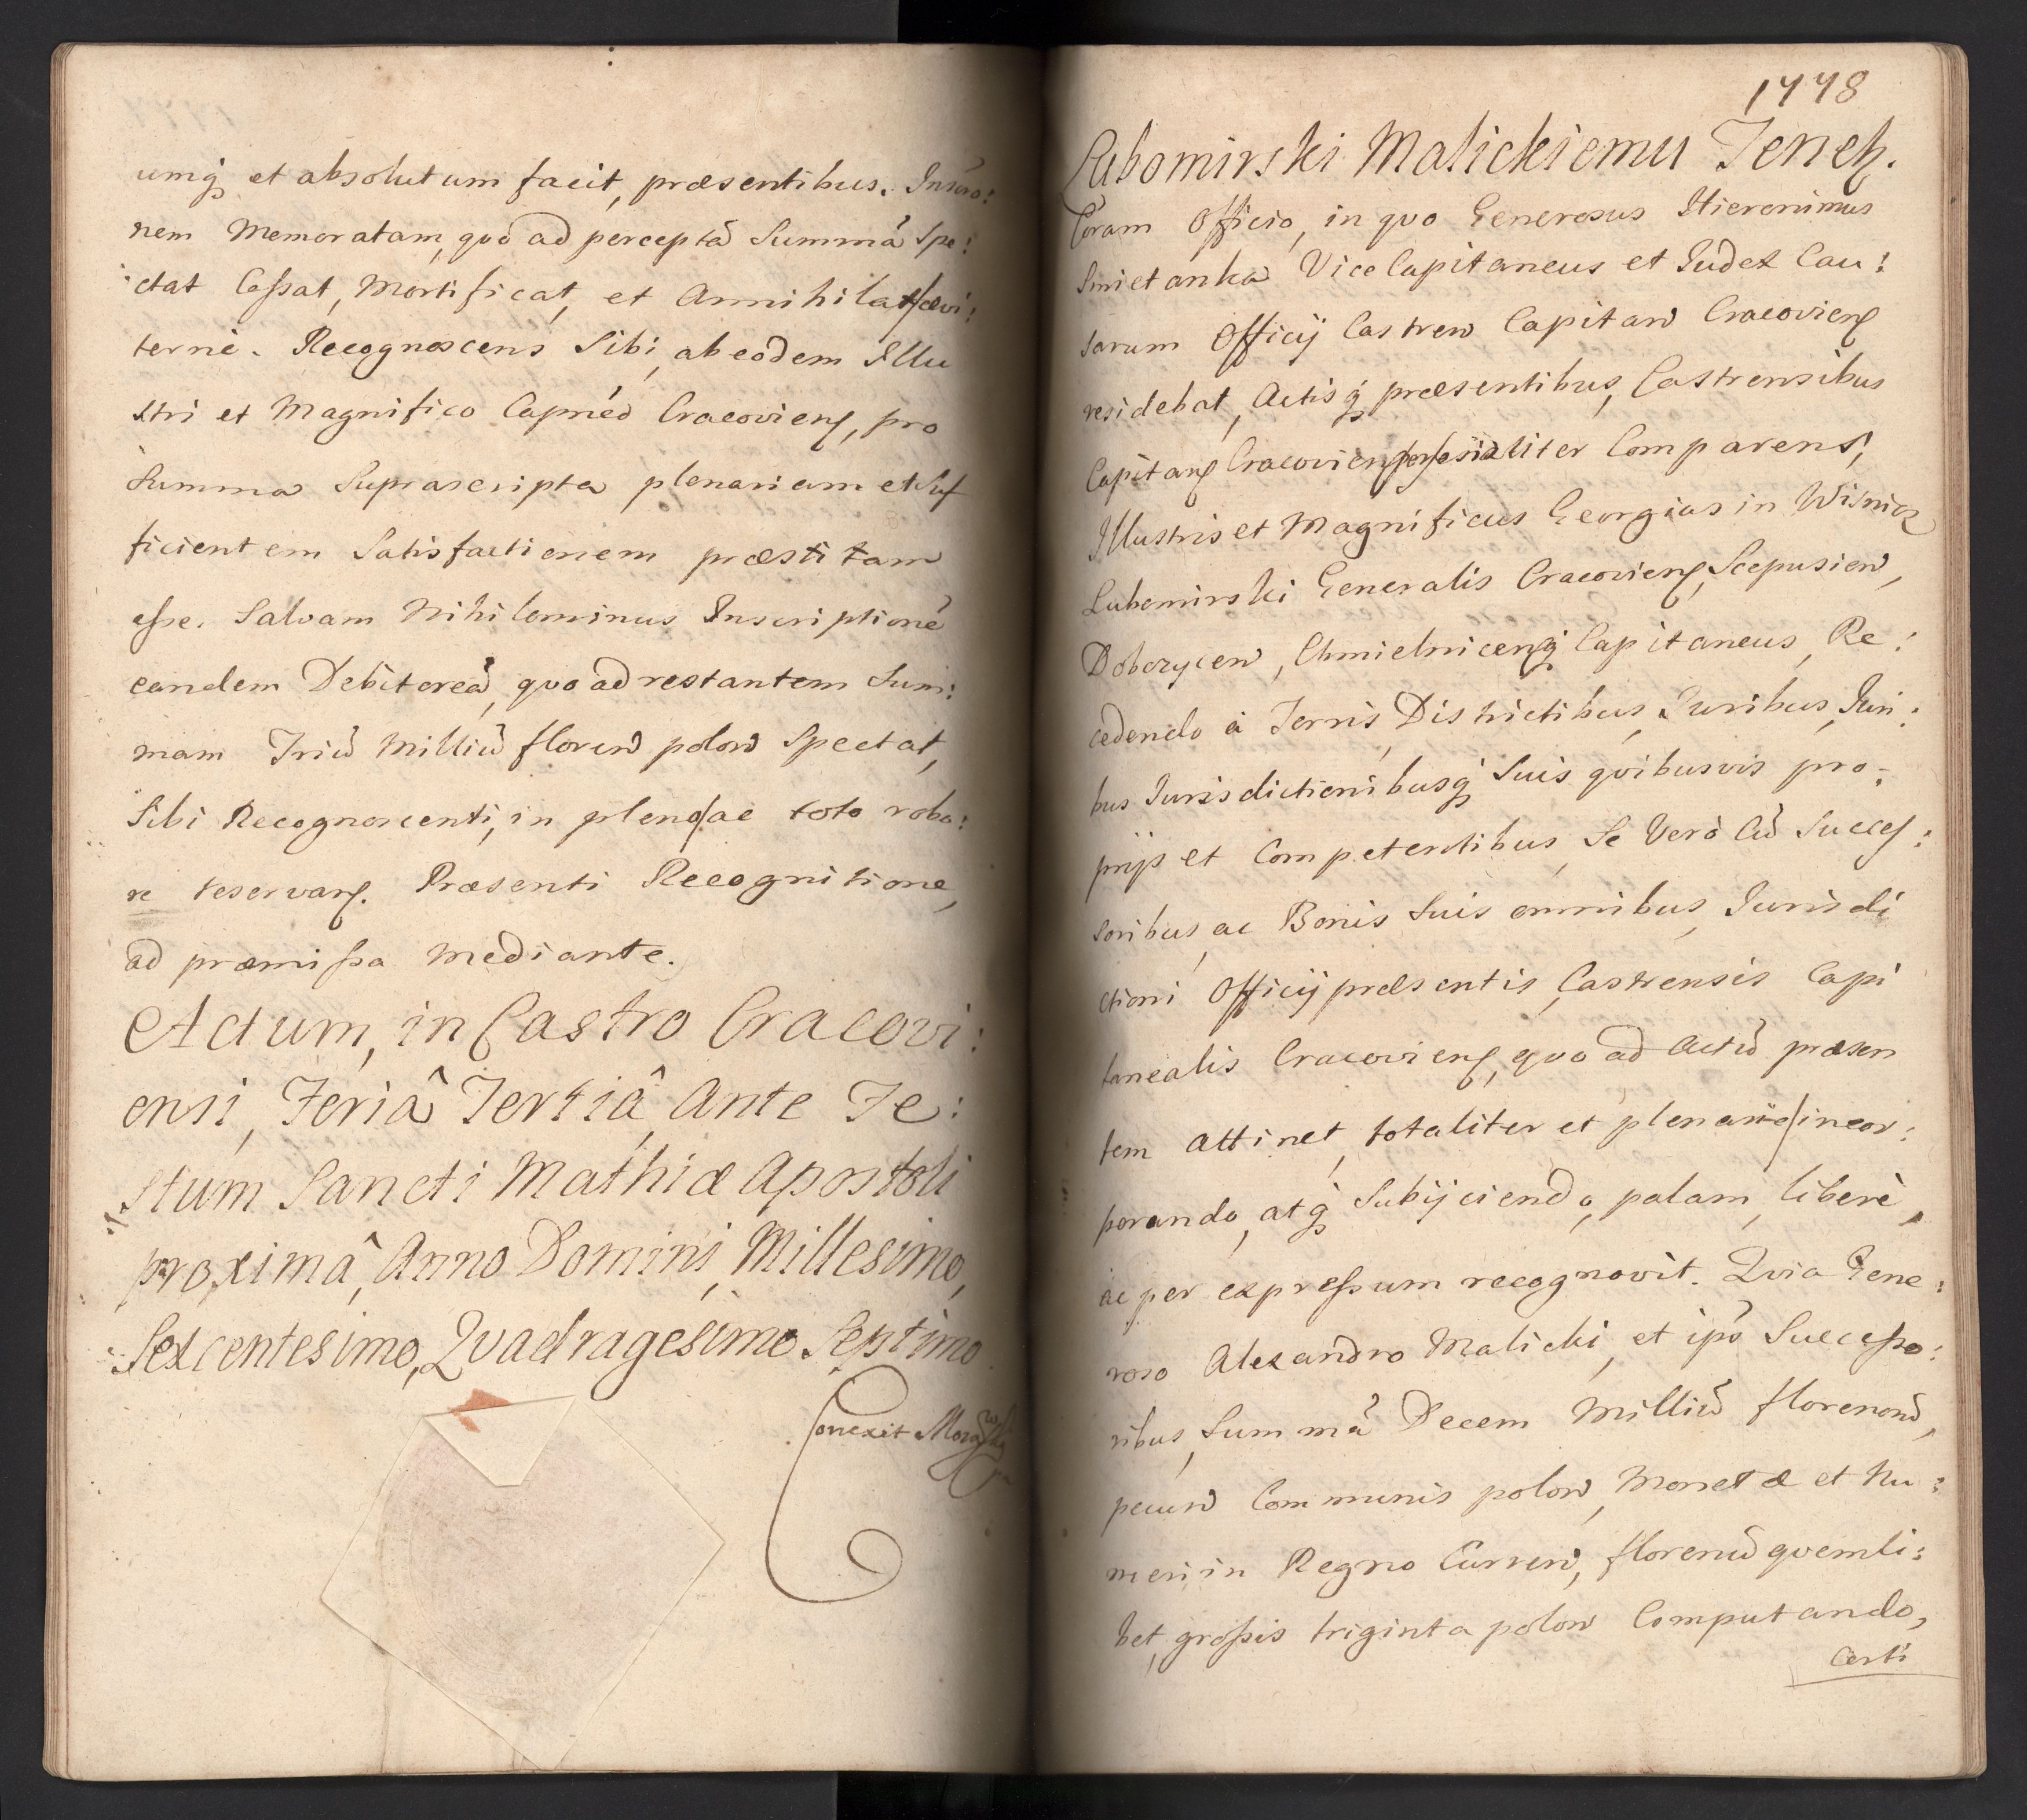 umq́ et absolutum facit, præsentibus. Inscrō:
nem Memoratam, qvo ad perceptā Summā Spe:
ctat Cassat, Mortificat, et Annihilat, ævi:
terne. Recognoscens Sibi, ab eodem Illu
stri et Magnifico Capnéo Cracovien, pro
Summa Suprascripta plenariam et Suf
ficientem Satisfactionem præstitam
esse. Salvam Nihilominus Inscriptionē
eandem Debitoreā, qvo ad restantem Sum:
mam Triū Milliū floren polon Spectat,
Sibi Recognoscenti, in pleno, ac toto robo:
re reservan. Præsenti Recognitione,
ad præmissa Mediante.
Actum, in Castro Cracovi:
ensi, Feriâ Tertiâ Ante Fe:
stum Sancti Mathiæ Apostoli
proximâ, Anno Domini, Millesimo,
Sexcentesimo, Qvadragesimo Septimo
Conexit
1778
Lubomirski Malickiemu Tenetz.
Coram Officio, in qvo Generosus Hieronimus
Smietanka Vice Capitaneus et Iudex Cau:
sarum Officij Castren Capitan Cracovien
residebat, Actisq́ præsentibus, Castrensibus
Capitan Cracovien personaliter Comparens,
Illustris et Magnificus Georgius in Wisnicz
Lubomirski Generalis Cracovien, Scepusien,
Dobczycen, Chmielnicenq́ Capitaneus, Re:
cedendo à Terris, Districtibus, Iuribus, Iuri:
bus Iurisdictionibusq́ Suis qvibusvis pro:
prijs et Competentibus, Se Verò Cū Succes:
soribus, ac Bonis Suis omnibus, Iurisdi
ctioni Officij præsentis, Castrensis Capi
tanealis Cracovien, qvo ad Actū præsen
tem Attinet, totaliter et plenariè, incor:
porando, atq́ Subijciendo, palam, liberè,
ac per expressum recognovit. Qvia Gene:
roso Alexandro Malicki, et ips̄ Successo:
ribus, Summā Decem Milliū florenorū,
pecun Communis polon, Monetæ et Nu:
meri in Regno Curren, florenū qvemli:
bet, grossis triginta polon Computando,
Certi